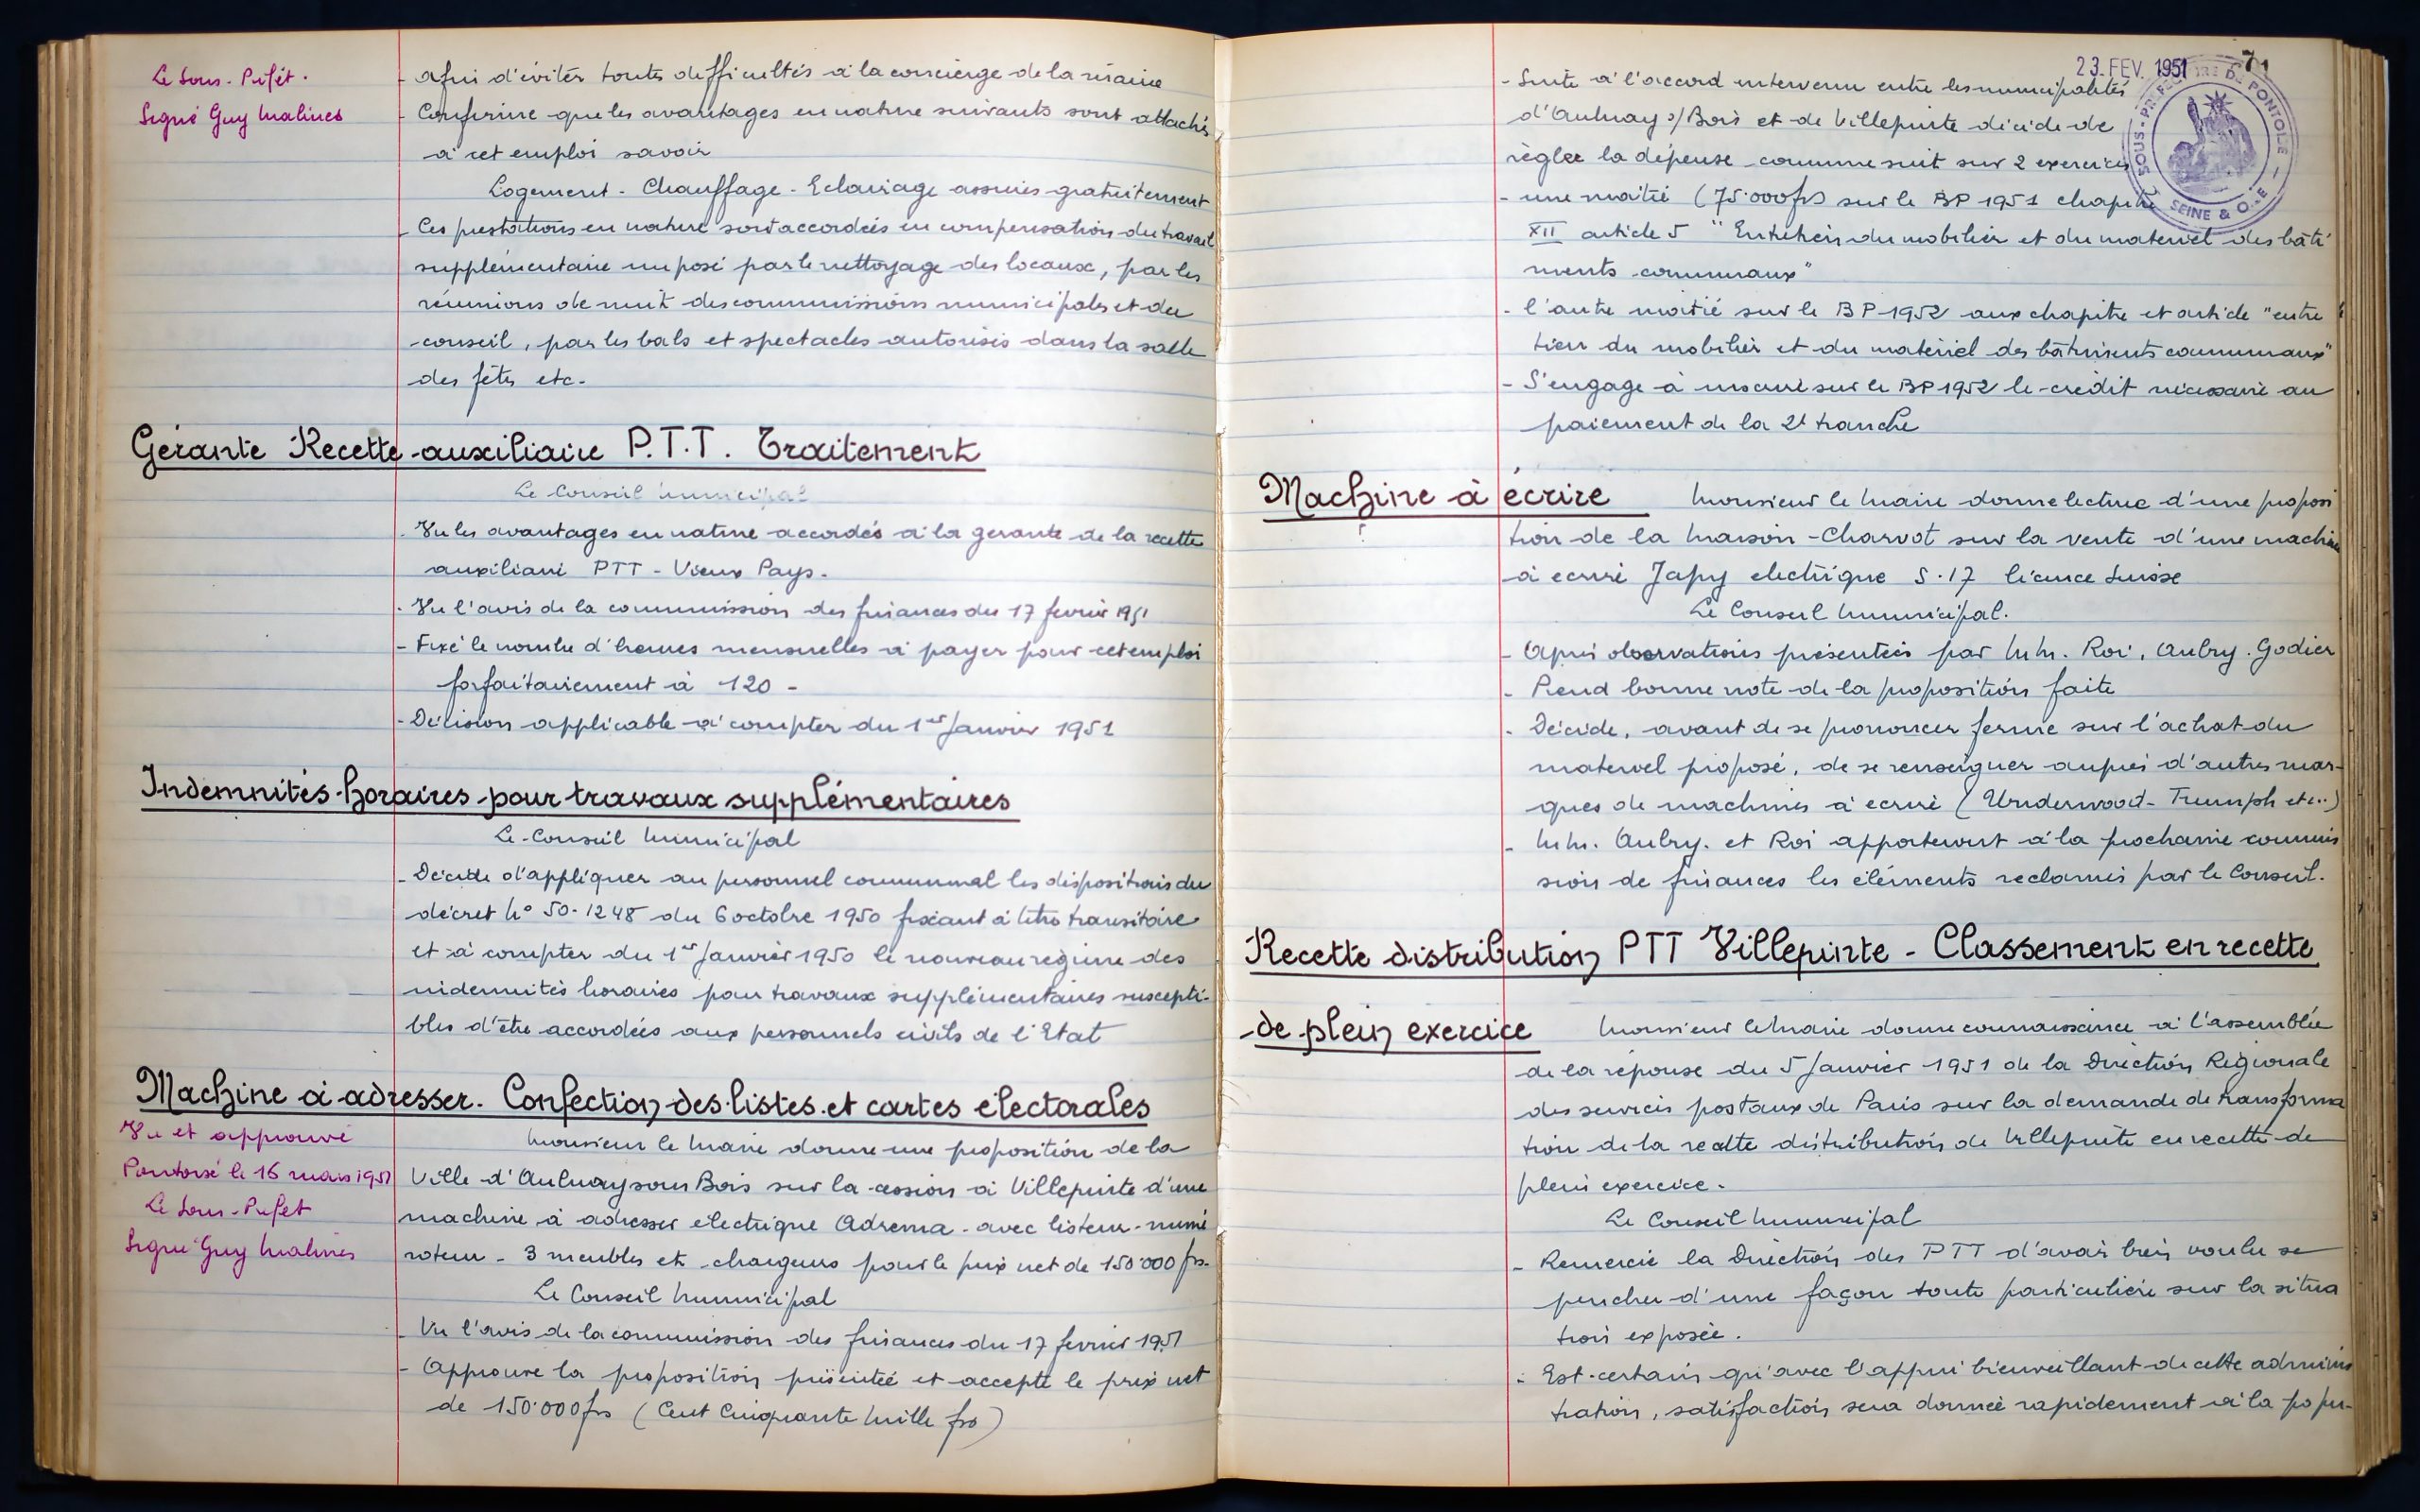 Le Sous-Préfet.
Signé Guy Malines
- afin d'éviter toutes difficultés à la concierge de la mairie
- Confirme que les avantages en nature suivants sont attachés
à cet emploi savoir
Logement - Chauffage - Eclairage assurés gratuitement
- Ces prestations en nature sont accordées en compensation du travail
supplémentaire imposé par le nettoyage des locaux, par les
réunions de nuit des commissions municipales et du
conseil, par les bals et spectacles autorisés dans la salle
des fêtes etc.
Gérante Recette-auxiliaire P.T.T. Traitement
Le Conseil municipal
- Vu les avantages en nature accordés à la gerante de la recette
auxiliaire PTT - Vieux Pays.
- Vu l'avis de la commission des finances du 17 fevrier 1951
- Fixe le nombre d'heures mensuelles à payer pour cet emploi
forfaitairement à 120 -
- Décision applicable à compter du 1er Janvier 1951
Indemnités horaires pour travaux supplémentaires
Le Conseil Municipal
- Décide d'appliquer au personnel communal les dispositions du
décret No 50-1248 du 6 octobre 1950 fixant à titre transitoire
et à compter du 1er Janvier 1950 le nouveau régime des
indemnités horaires pour travaux supplémentaires suscepti-
bles d'être accordées aux personnels civils de l'Etat
Machine à adresser. Confection des listes et cartes électorales
Vu et approuvé
Pontoise le 16 mars 1951
Le Sous-Préfet
Signé Guy Malines
Monsieur le Maire donne une proposition de la
Ville d'Aulnay sous Bois sur la cession à Villepinte d'une
machine à adresser electrique Adrema - avec listeur - numé
roteur - 3 meubles et chargeurs pour le prix net de 150.000 frs.
Le Conseil Municipal
- Vu l'avis de la commission des finances du 17 fevrier 1951
- Approuve la proposition présentée et accepte le prix net
de 150.000 frs (Cent Cinquante Mille frs)
23. FEV. 1951
71
SOUS-PREFECTURE DE PONTOISE
SEINE & O.-E
- Suite à l'accord intervenu entre les municipalités
d'Aulnay s/Bois et de Villepinte décide de
règler la dépense comme suit sur 2 exercices
- une moitié (75.000 frs) sur le BP 1951 chapitre
XII article 5 "Entretien du mobilier et du materiel des bâti
ments communaux"
- l'autre moitié sur le BP 1952 aux chapitre et article "entre
tien du mobilier et du matériel des bâtiments communaux"
- S'engage à inscrire sur le BP 1952 le crédit nécessaire au
paiement de la 2e tranche
Machine à écrire Monsieur le Maire donne lecture d'une proposi
tion de la Maison Charvot sur la vente d'une machine
à ecrire Japy electrique S.17 licence Suisse
Le Conseil Municipal.
- Après observations présentées par MM. Roi, Aubry. Godier
- Prend bonne note de la proposition faite
- Décide, avant de se prononcer ferme sur l'achat du
materiel proposé, de se renseigner auprès d'autres mar-
ques de machines à ecrire (Underwood - Triumph etc..)
- MM. Aubry. et Roi apporteront à la prochaine commis
sion de finances les éléments reclamés par le Conseil.
Recette distribution PTT Villepinte - Classement en recette
de plein exercice Monsieur le Maire donne connaissance à l'assemblée
de la réponse du 5 Janvier 1951 de la Direction Régionale
des services postaux de Paris sur la demande de transforma
tion de la recette distribution de Villepinte en recette de
plein exercice.
Le Conseil Municipal
- Remercie la Direction des PTT d'avoir bien voulu se
pencher d'une façon toute particulière sur la situa
tion exposée.
- Est certain qu'avec l'appui bienveillant de cette adminis
tration, satisfaction sera donnée rapidement à la popu-